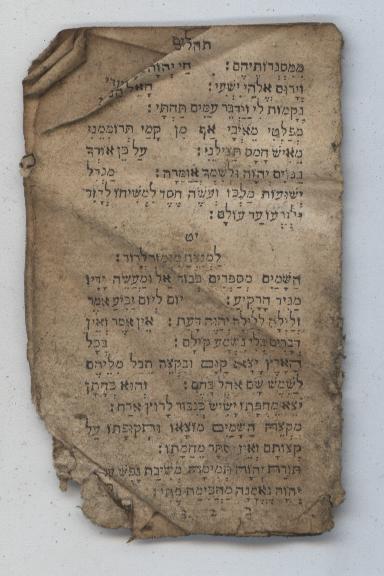 תהלים
ממסגרותיהם : חי יהוה
וירום אלהי ישעי : האל
נקמות לי וידבר עמים תחתי :
מפלטי מאיבי אף מן קמי תרוממני
מאיש חמס תצילני : על כן אודך
בגוים יהוה ולשמך אזמרה : מגדל
ישועות מלכו ועשה חסד למשיחו לדוד
ולזרעו עד עולם :
יט
למנצח מזמור לדוד :
השמים מספרים כבוד אל ומעשה ידיו
מגיד הרקיע : יום ליום יביע אמר
ולילה ללילה יחוה דעת : אין אמר ואין
דברים בלי נשמע קולם : בכל
הארץ יצא קום ובקצה תבל מליהם
לשמש שם אהל בהם : והוא כחתן
יצא מחפתו ישיש כגבור לרוץ ארח :
מקצה השמים מוצאו ותקופתו על
קצותם ואין נסתר מחמתו :
תורת יהוה תמימה משיבת נפש עדות
יהוה נאמנה מחכימת פתי :